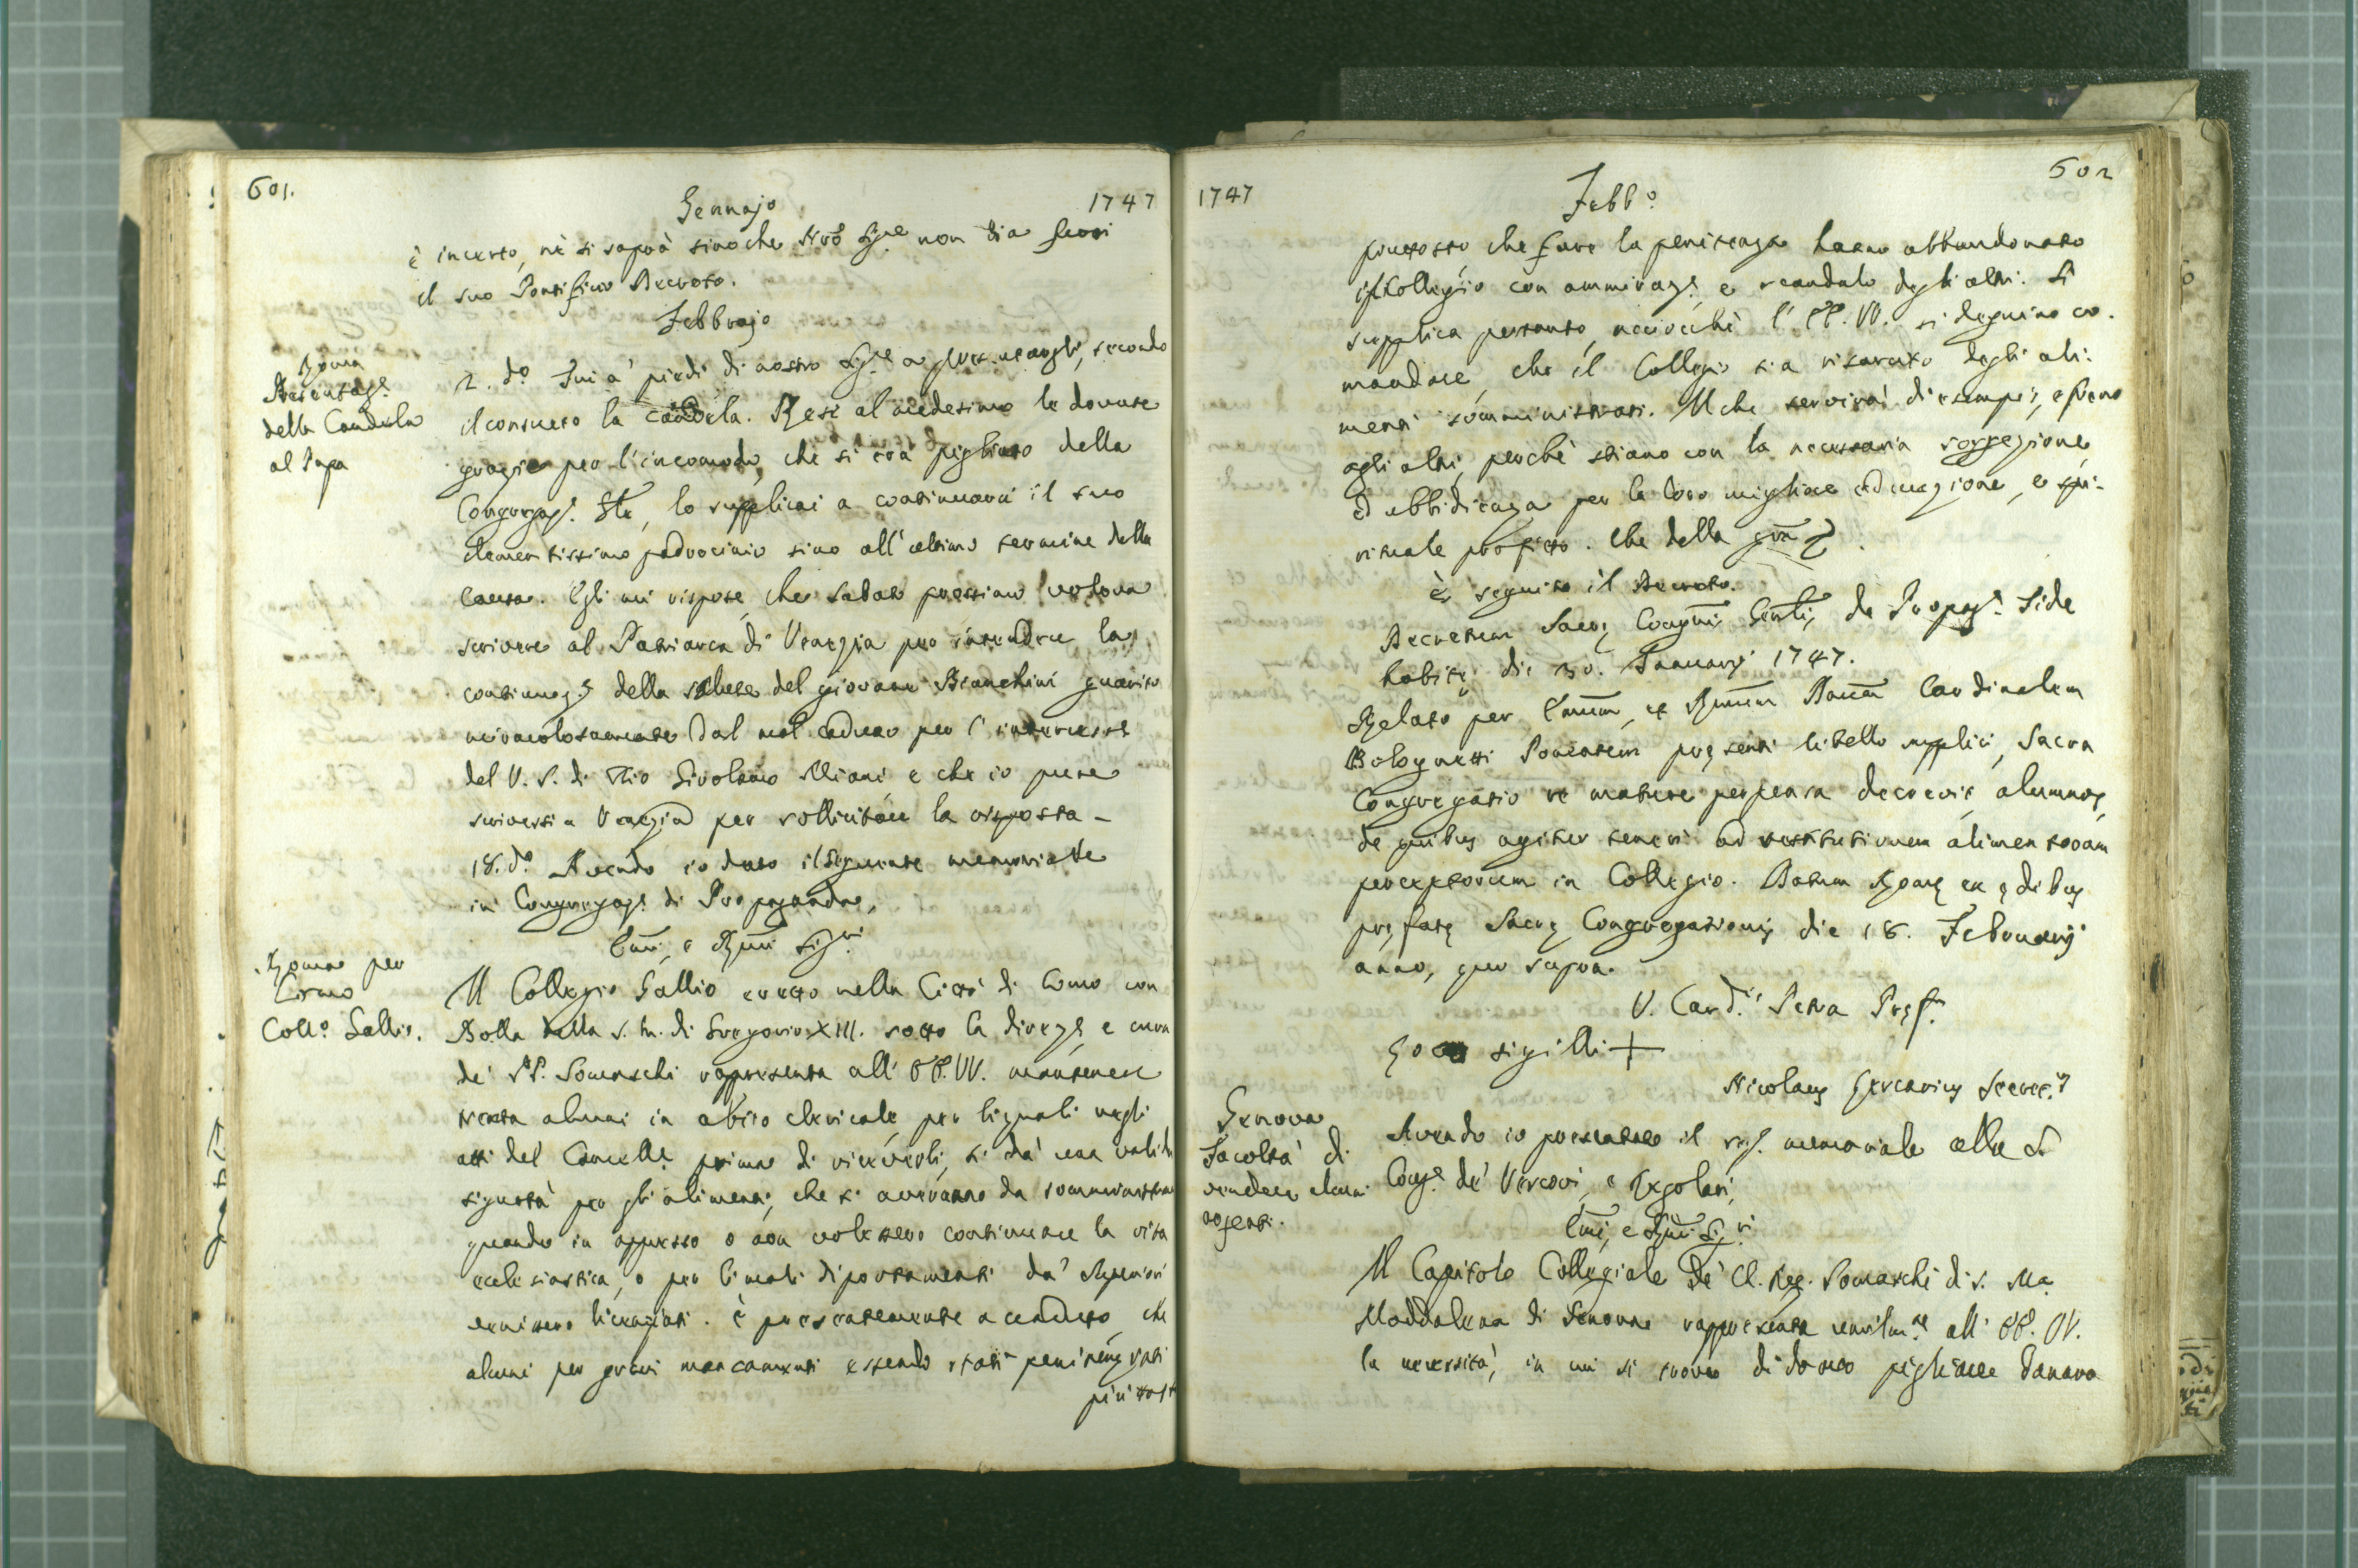 601.
Gennajo
1747
è incerto, nè si saprà sinoche Nrô Sigre non dia fuori
il suo Pontificio Decreto.
Febbrajo
Roma
Presentaze
della Candela
al Papa
2. do Fui a' piedi di nostro Sigre a presentargli, secondo
il consueto la candela. Resi al medesimo le dovute
grazie per l'incomodo, che si era pigliato della
Congregaze Ste, lo supplicai a continuarci il suo
clementissimo padrocinio sino all'ultimo termine della
Causa. Egli mi rispose, che Sabato prossimo voleva
scrivere al Patriarca di Venezia per intendere la
continuaze della salute del giovane Bianchini guarito
miracolosamente dal mal caduco per l'intercesse
del V. S. di Dio Girolamo Miani e che io pure
scrivessi a Venezia per sollicitare la risposta -
18. do Avendo io dato il seguente memoriale
in Congregaze di Propaganda,
Emi, e Rmi Sigri
Roma per
Como
Collo Gallio.
Il Collegio Gallio eretto nella Città di Como con
Bolla della S. M. di Gregorio XIII. sotto la direze e cura
de' PP. Somaschi rappresenta all' EE. VV. mantenere
trenta alunni in abito clericale, per li quali negli
atti del Cancelle prima di riceverli, si dà una valida
sigurtà per gli alimenti, che si averanno da somministrare
quando in appresso o non volessero continuare la vita
ecclesiastica, o per li mali diportamenti da' Superiori
venissero licenziati. È presentemente accaduto, che
alcuni per gravi mancamenti essendo stati penitenziati
più tosto
1747
602
Febbo
piuttosto che fare la penitenza hanno abbandonato
il Collegio con ammiraze e scandalo degli altri. Si
supplica pertanto, acciocchè l'EE. VV. si degnino co-
mandare, che il Collegio sia risarcito degli ali-
menti somministrati. Il che servirà di esempio, e freno
agli altri, perchè stiano con la necessaria soggezione,
ed ubbidienza per la loro migliore educazione, e spi-
rituale profitto. Che della gra
è seguito il Decreto.
Decretum Sacrę Congnis Gentlis de Propagda Fide
habitę die 30. Januarij 1747.
Relato per Emum, et Rmum Dnum Cardinalem
Bolognetti Ponentem pręsenti libello supplici, Sacra
Congregatio re mature perpensa decrevit, alumnos,
de quibus agitur teneri ad restitutionem alimentorum
perceptorum in Collegio. Datum Romę ex ędibus
pręfatę Sacrę Congregationis die 18. Februarij
anno, quo supra.
V. Card.lis Petra Pręf.
Loco sigilli +
Nicolaus Lercarius Secret.s
Genova
Facoltà di
vendere alcuni
argenti.
Avendo io presentato il seg. memoriale alla S.
Conge de' Vescovi, e Regolari,
Emi, e Rmi Sigri
Il Capitolo Collegiale De' Cl. Reg. Somaschi di S. Ma
Maddalena di Genova rappresenta umilmte all' EE. VV.
la necessità, in cui si trova di dover pigliare danaro